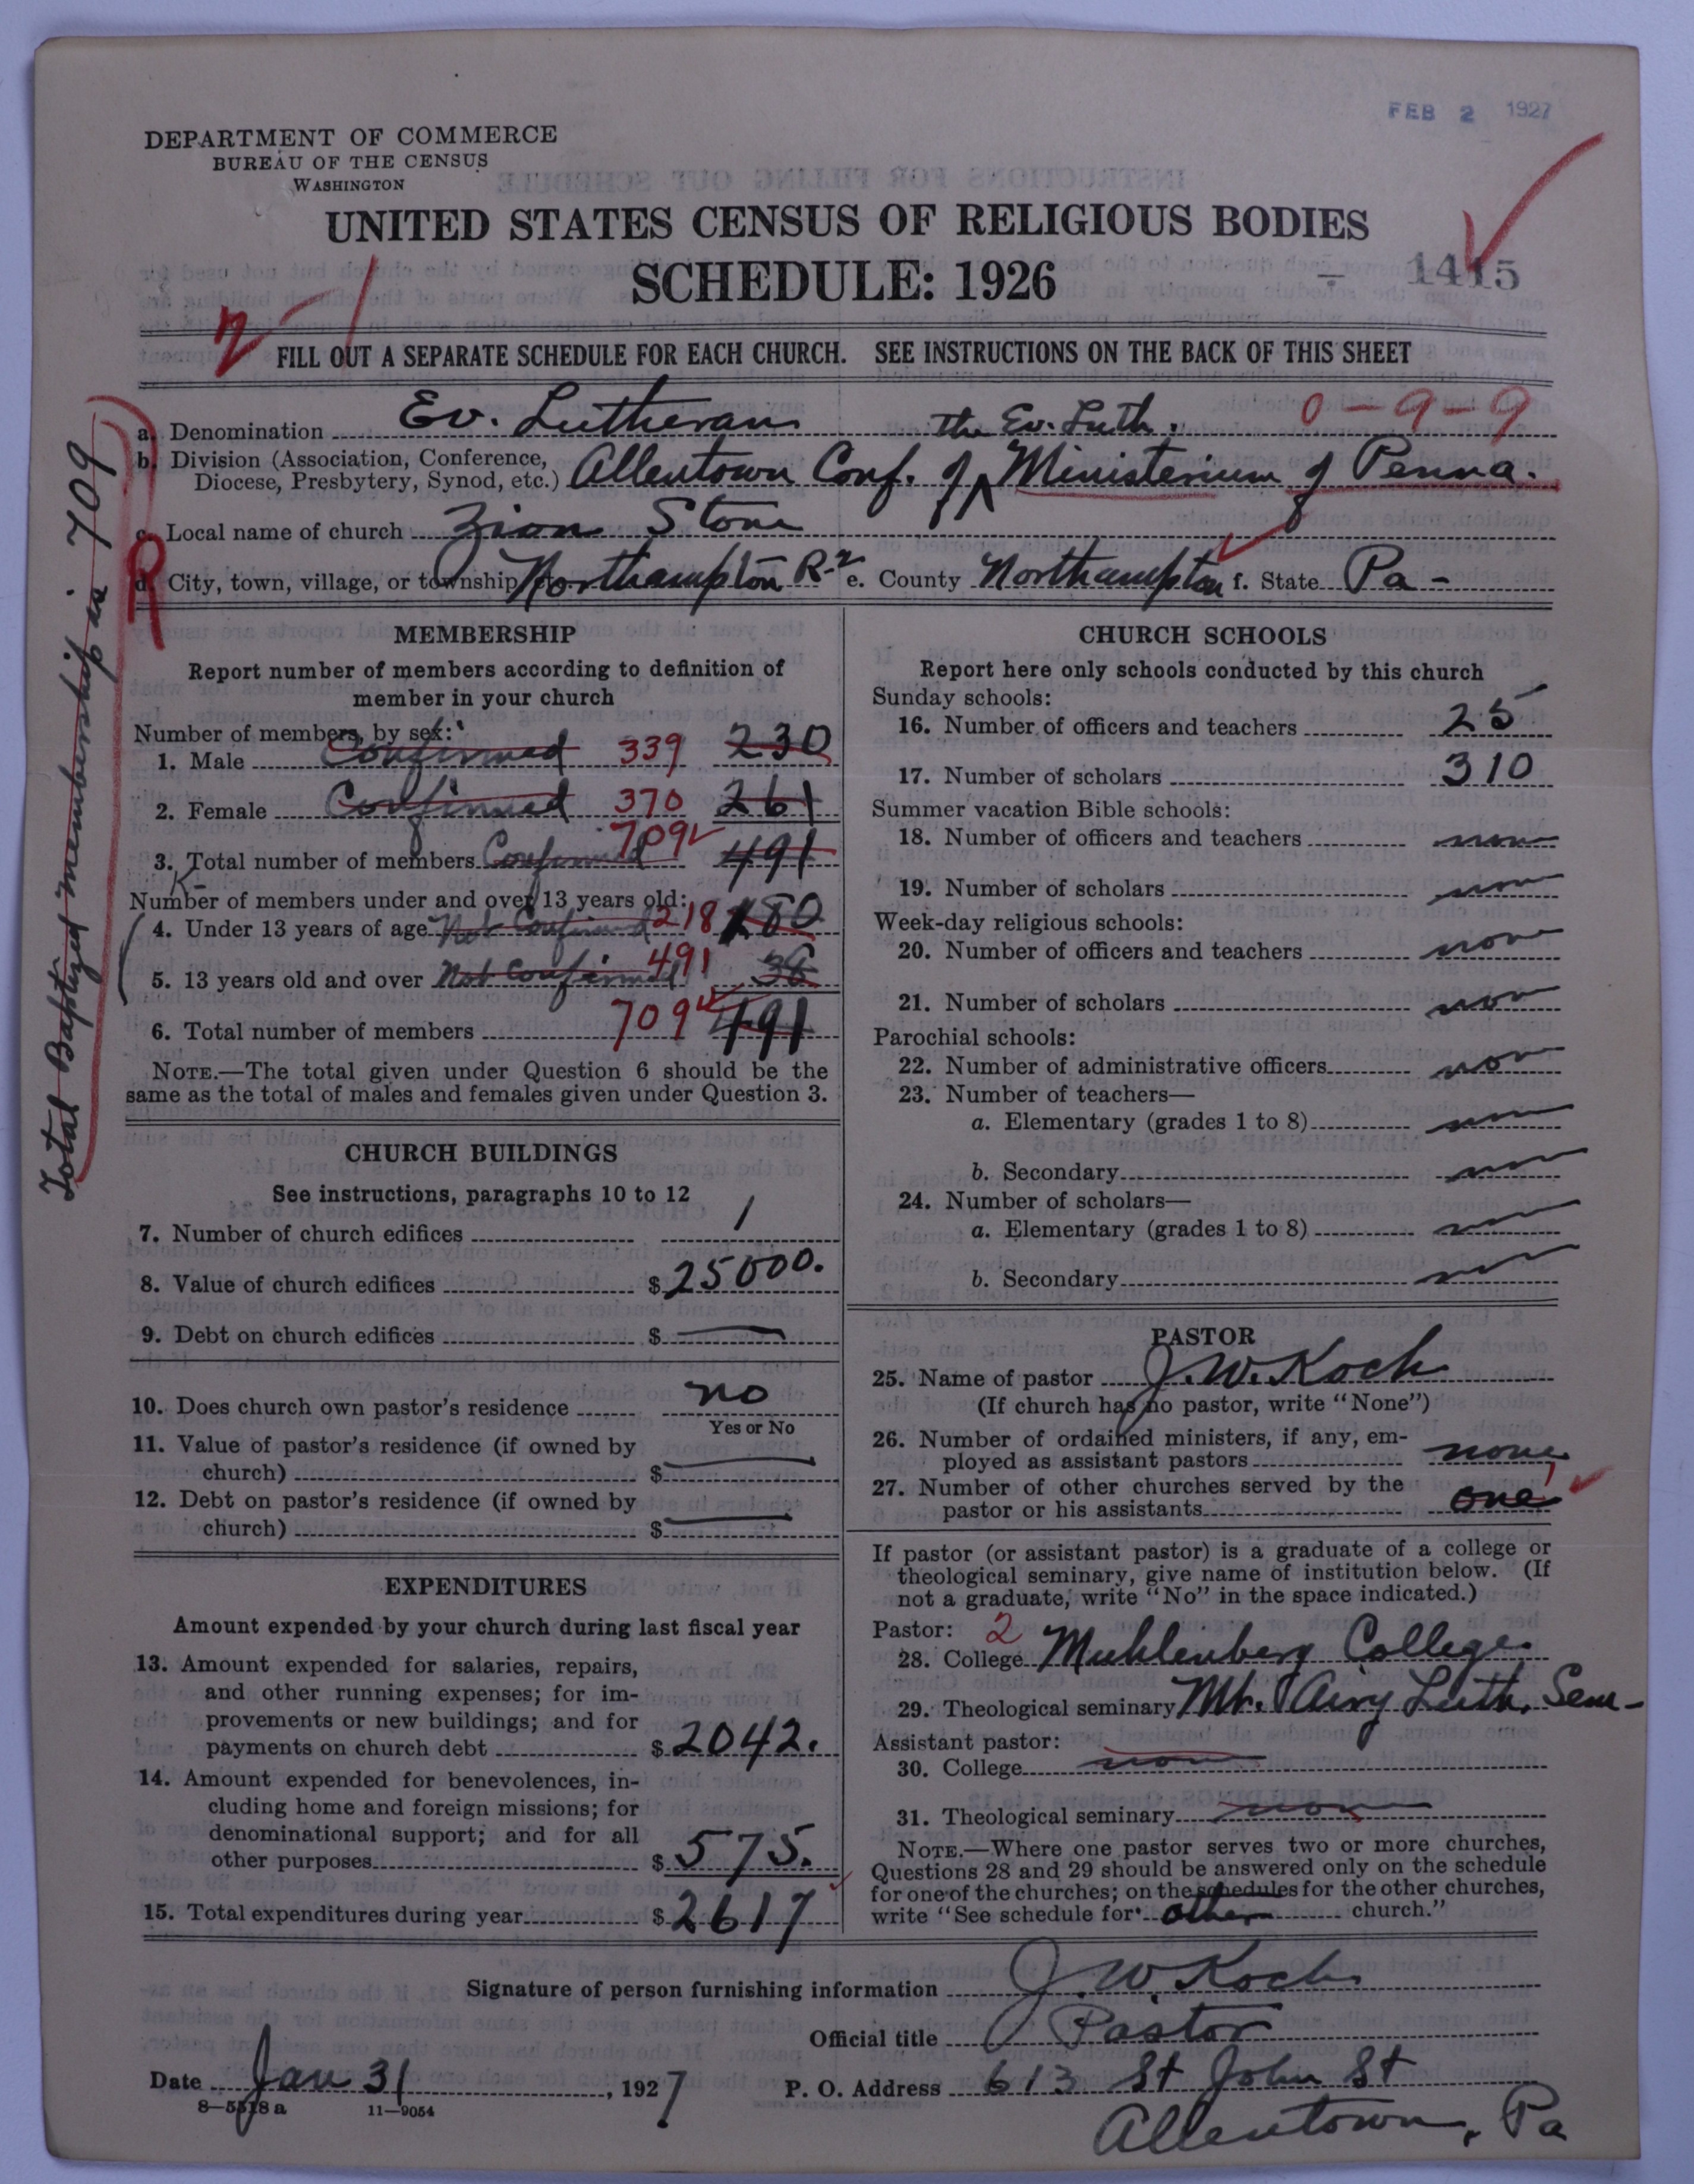 FEB 2 1927
DEPARTMENT OF COMMERCE
BUREAU OF THE CENSUS
WASHINGTON
UNITED STATES CENSUS OF RELIGIOUS BODIES
SCHEDULE: 1926
1415
FILL OUT A SEPARATE SCHEDULE FOR EACH CHURCH. SEE INSTRUCTIONS ON THE BACK OF THIS SHEET
a. Denomination Ev. Lutheran 0-9-9
the Ev. Luth.
b. Division (Association, Conference, Diocese, Presbytery, Synod, etc.) Allentown Conf. of Ministerium of Penna.
c. Local name of church Zion Stone
d. City, town, village, or township, etc. Northampton R-2 e. County Northampton f. State Pa-
Total Baptized membership is 709
R
MEMBERSHIP
Report number of members according to definition of
member in your church
Number of members, by sex:
1. Male Confirmed 339 230
2. Female Confirmed 370 261
3. Total number of members Confirmed 709 491
Number of members under and over 13 years old:
4. Under 13 years of age Not Confirmed 218 180
5. 13 years old and over Not Confirmed 491 38
6. Total number of members 709 491
NOTE.—The total given under Question 6 should be the
same as the total of males and females given under Question 3.
CHURCH BUILDINGS
See instructions, paragraphs 10 to 12
7. Number of church edifices 1
8. Value of church edifices $ 25000.
9. Debt on church edifices $ —
10. Does church own pastor's residence no
Yes or No
11. Value of pastor's residence (if owned by
church) $ —
12. Debt on pastor's residence (if owned by
church) $ —
EXPENDITURES
Amount expended by your church during last fiscal year
13. Amount expended for salaries, repairs,
and other running expenses; for im-
provements or new buildings; and for
payments on church debt $ 2042.
14. Amount expended for benevolences, in-
cluding home and foreign missions; for
denominational support; and for all
other purposes $ 575.
15. Total expenditures during year $ 2617
CHURCH SCHOOLS
Report here only schools conducted by this church
Sunday schools:
16. Number of officers and teachers 25
17. Number of scholars 310
Summer vacation Bible schools:
18. Number of officers and teachers none
19. Number of scholars none
Week-day religious schools:
20. Number of officers and teachers none
21. Number of scholars none
Parochial schools:
22. Number of administrative officers none
23. Number of teachers—
a. Elementary (grades 1 to 8) none
b. Secondary none
24. Number of scholars—
a. Elementary (grades 1 to 8) none
b. Secondary none
PASTOR
25. Name of pastor J. W. Koch
(If church has no pastor, write "None")
26. Number of ordained ministers, if any, em-
ployed as assistant pastors none
27. Number of other churches served by the
pastor or his assistants one 1
If pastor (or assistant pastor) is a graduate of a college or
theological seminary, give name of institution below. (If
not a graduate, write "No" in the space indicated.)
Pastor: 2
28. College Muhlenberg College.
29. Theological seminary Mt. Airy Luth. Sem-
Assistant pastor:
30. College none
31. Theological seminary none
NOTE.—Where one pastor serves two or more churches,
Questions 28 and 29 should be answered only on the schedule
for one of the churches; on the schedules for the other churches,
write "See schedule for other church."
Signature of person furnishing information J. W. Koch
Official title Pastor
Date Jan 31, 1927 P. O. Address 613 St John St
8-5518 a 11-9054 Allentown, Pa